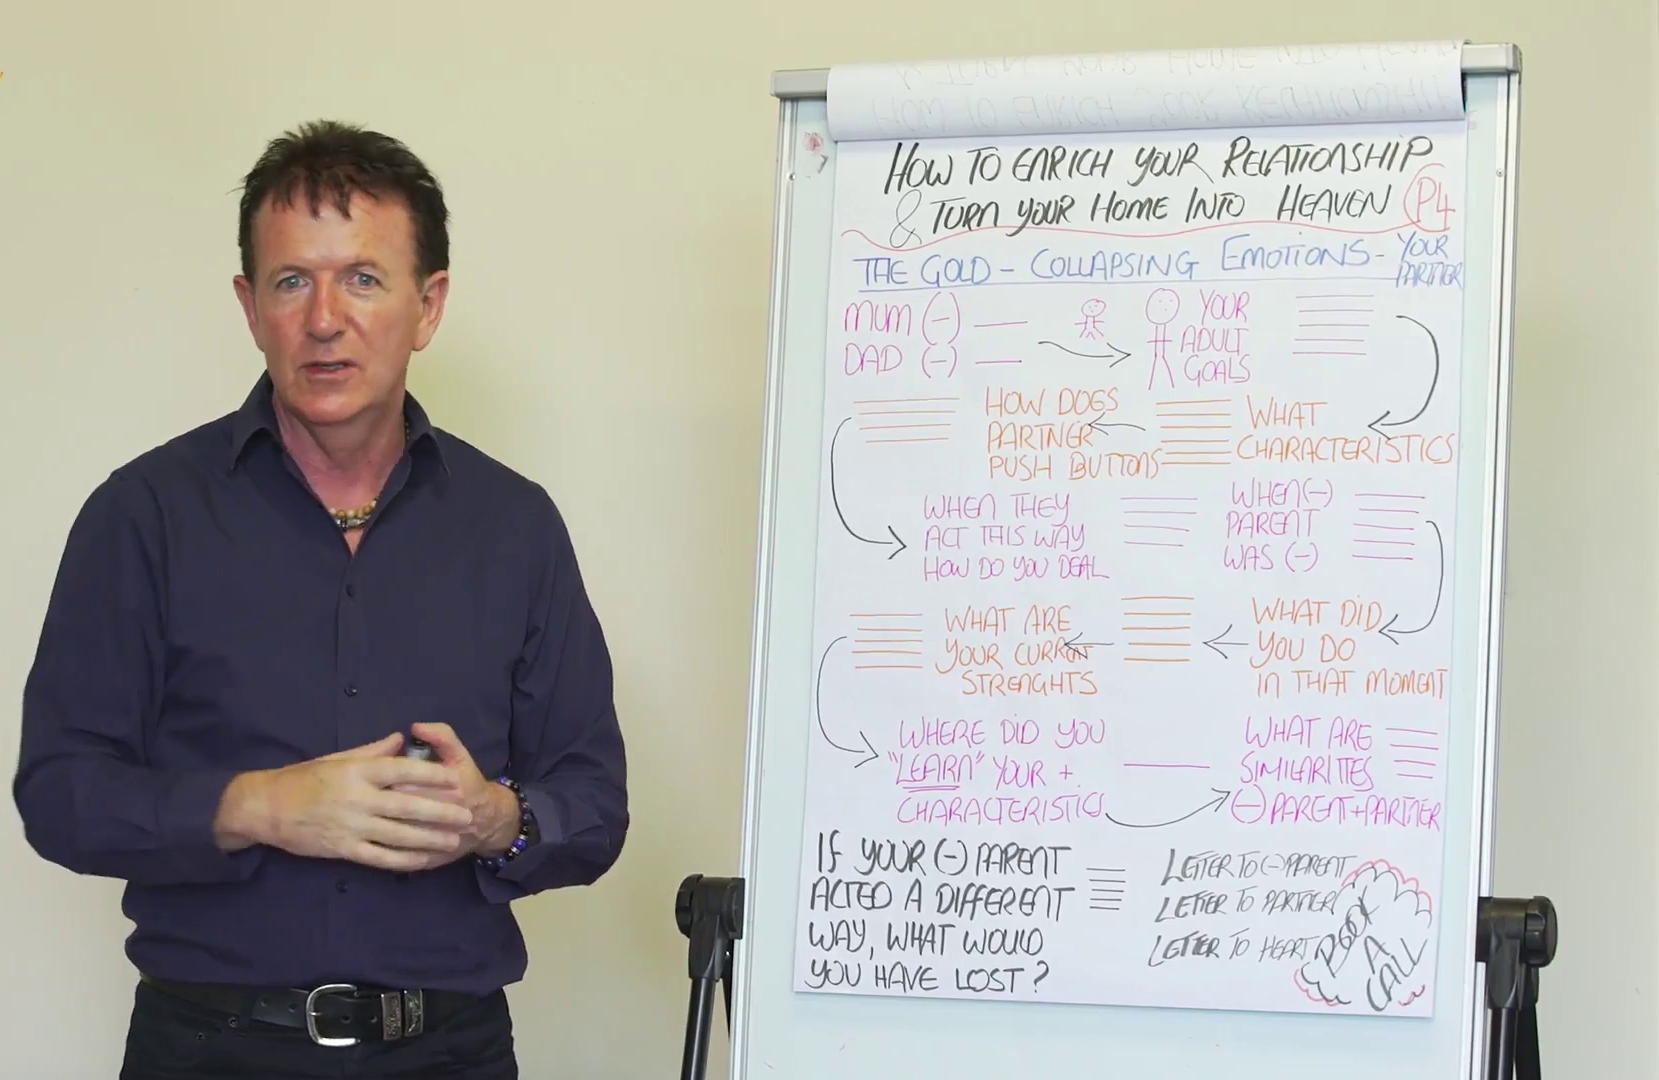 HOW TO ENRICH YOUR RELATIONSHIP
& TURN YOUR HOME INTO HEAVEN P4
THE GOLD - COLLAPSING EMOTIONS - YOUR
PARTNER
MUM (-)
DAD (-)
YOUR
ADULT
GOALS
WHAT
CHARACTERISTICS
HOW DOES
PARTNER
PUSH BUTTONS
WHEN THEY
ACT THIS WAY
HOW DO YOU DEAL
WHEN (-)
PARENT
WAS (-)
WHAT DID
YOU DO
IN THAT MOMENT
WHAT ARE
YOUR CURRENT
STRENGHTS
WHERE DID YOU
"LEARN" YOUR +
CHARACTERISTICS
WHAT ARE
SIMILARITIES
(-) PARENT + PARTNER
IF YOUR (-) PARENT
ACTED A DIFFERENT
WAY, WHAT WOULD
YOU HAVE LOST?
LETTER TO (-) PARENT
LETTER TO PARTNER
LETTER TO HEART
BOOK
A
CALL